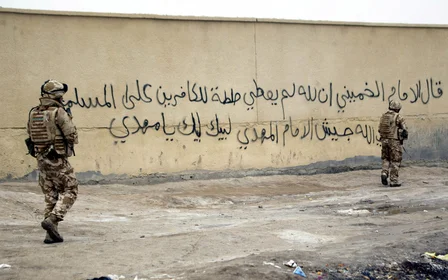 قال الامام الخميني ان الله لم يعطي سلطة للكافرين على المسلمين
الله جيش الامام المهدي لبيك لبيك يا مهدي